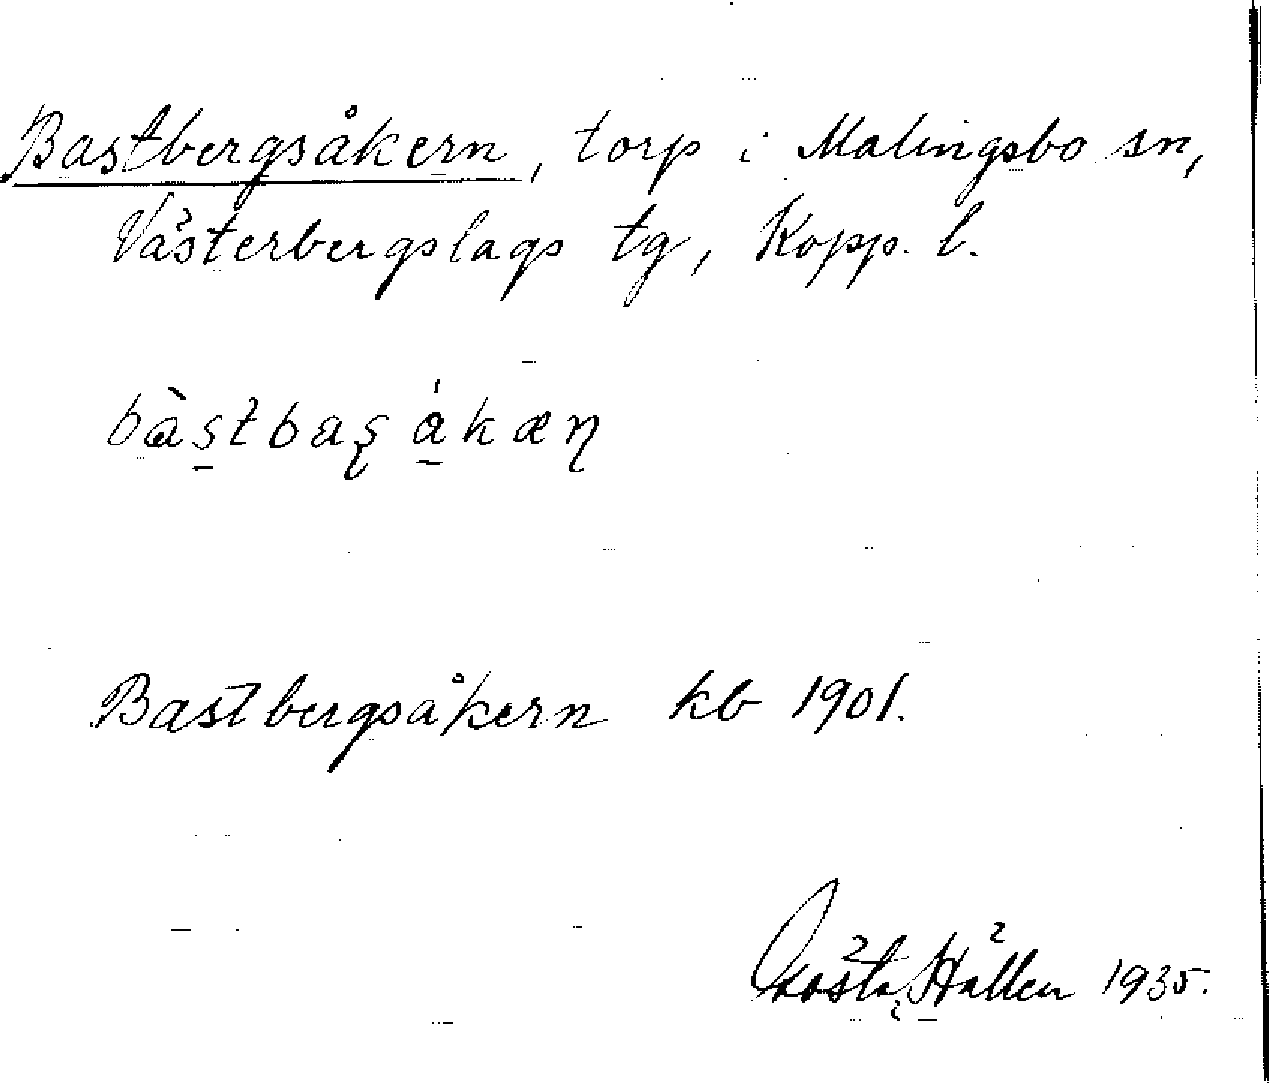 Bastbergsåkern, torp i Malingsbo sn,
Västerbergslags tg, Kopp. l.
Bastbergsåkern kb 1901.
Gösta Hallén 1935.